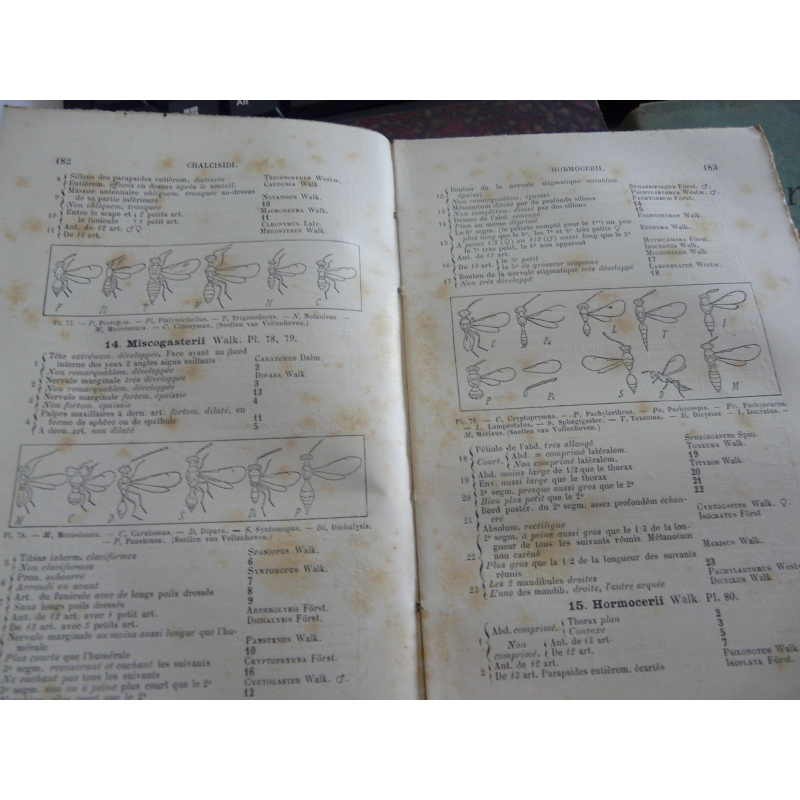 Alt
182
CHALCISIDI.
8 Sillons des parapsides entièrem. distincts TRIGONODERUS Westw.
Entièrem. effacés en dessus après le scutell. CAEDONIA Walk.
9 Masson antennaire obliquem. tronquée au-dessous
de sa partie inférieure NOTANISUS Walk.
Non obliquem. tronquée 10
10 Entre le scape et 2 petits art. MACRONEURA Walk.
le funicule 1 petit art. 11
11 Ant. de 12 art. ♂ ♀ CLEONYMUS Latr.
De 13 art. MEROSTENUS Walk.
P Pl T N M C
Pl. 77. — P, Protopus. — Pl, Platynocheilus. — T, Trigonoderus. — N, Notanisus. —
M, Macroneura. — C, Cleonymus. (Snellen van Vollenhoven.)
14. Miscogasterii Walk. Pl. 78, 79.
1 Tête extrêmem. développée. Face ayant au bord
interne des yeux 2 angles aigus saillants CARATOMUS Dalm.
Non remarquablem. développée 2
2 Nervule marginale très développée DIPARA Walk.
Non remarquablem. développée 3
3 Nervule marginale fortem. épaissie 13
Non fortem. épaissie 4
4 Palpes maxillaires à dern. art. fortem. dilaté, en
forme de sphère ou de spathule 11
A dern. art. non dilaté 5
M C D S Di P
Pl. 78. — M, Monostenus. — C, Caratomus. — D, Dipara. — S, Syntomopus. — Di, Dichalysis.
— P, Panstenus. (Snellen van Vollenhoven.)
5 Tibias interm. claviformes SPANIOPUS Walk.
Non claviformes 6
6 Pron. subcarré SYNTOMOPUS Walk.
Arrondi en avant 7
Art. du funicule avec de longs poils dressés 8
Sans longs poils dressés 9
Ant. de 12 art. avec 1 petit art. ARTHROLYSIS Först.
De 13 art. avec 3 petits art. DICHALYSIS Först.
Nervule marginale au moins aussi longue que l'humérale
PANSTENON Walk.
Plus courte que l'humérale 10
3e segm. recouvrant et cachant les suivants CRYPTOPRYMNA Först.
Ne cachant pas tous les suivants 16
segm. non ou à peine plus court que le 2e CYRTOGASTER Walk. ♂.
12
HORMOCERII.
183
12 Bouton de la nervule stigmatique notablem.
épaissi SPHAEROPYLUS Först. ♂.
Non remarquablem. épaissi PACHYLARTHRUS Westw.
13 Mésonotum divisé par de profonds sillons PACHYCREPIS Först.
Non complètem. divisé par des sillons 14
14 Dessus de l'abd. convexe 15
Plan ou même déprimé PACHYNEURON Walk.
15
EUTELUS Walk.
HYPOCYRTUS Först.
ISOCYRTUS Walk.
MICROMELUS Walk.
16 De 13 art. le 5e petit 17
le 5e de grosseur moyenne LAMPROTATUS Westw.
17 Bouton de la nervule stigmatique très développé 18
Non très développé
C Pa L T I
P Po S D M
Pl. 79. — C, Cryptoprymna. — P, Pachylarthrus. — Po, Pachycrepis. — Pa, Pachyneuron.
— L, Lamprotatus. — S, Sphegigaster. — T, Toxeuma. — D, Dicyclus. — I, Isocratus. —
M, Merisus. (Snellen van Vollenhoven.)
18 Pétiole de l'abd. très allongé SPHEGIGASTER Spin.
Court. Abd. = comprimé latéralem. TOXEUMA Walk.
Non comprimé latéralem. 19
19 Abd. moins large de 1/2 que le thorax TITYROS Walk.
Env. aussi large que le thorax 20
20 3e segm. presque aussi gros que le 2e 21
Bien plus petit que le 2e 22
21 Bord postér. du 2e segm. assez profondém échancré
CYRTOGASTER Walk. ♀.
Absolum. rectiligne ISOCRATUS Först
22 2e segm. à peine aussi gros que le 1/3 de la longueur
de tous les suivants réunis. Métanotum
non caréné MERISUS Walk.
Plus gros que la 1/2 de la longueur des suivants
réunis 23
23 Les 2 mandibules droites PACHYLARTHRUS Westw
L'une des mandib. droite, l'autre arquée DICYCLUS Walk
15. Hormocerii Walk Pl. 80.
1 Abd. comprimé. Thorax plan 2
Convexe 3
Non comprimé. Ant. de 13 art. 5
De 12 art. 7
2 Ant. de 12 art. PSILONOTUS Walk.
De 13 art. Parapsides entièrem. écartés ISOPLATA Först.